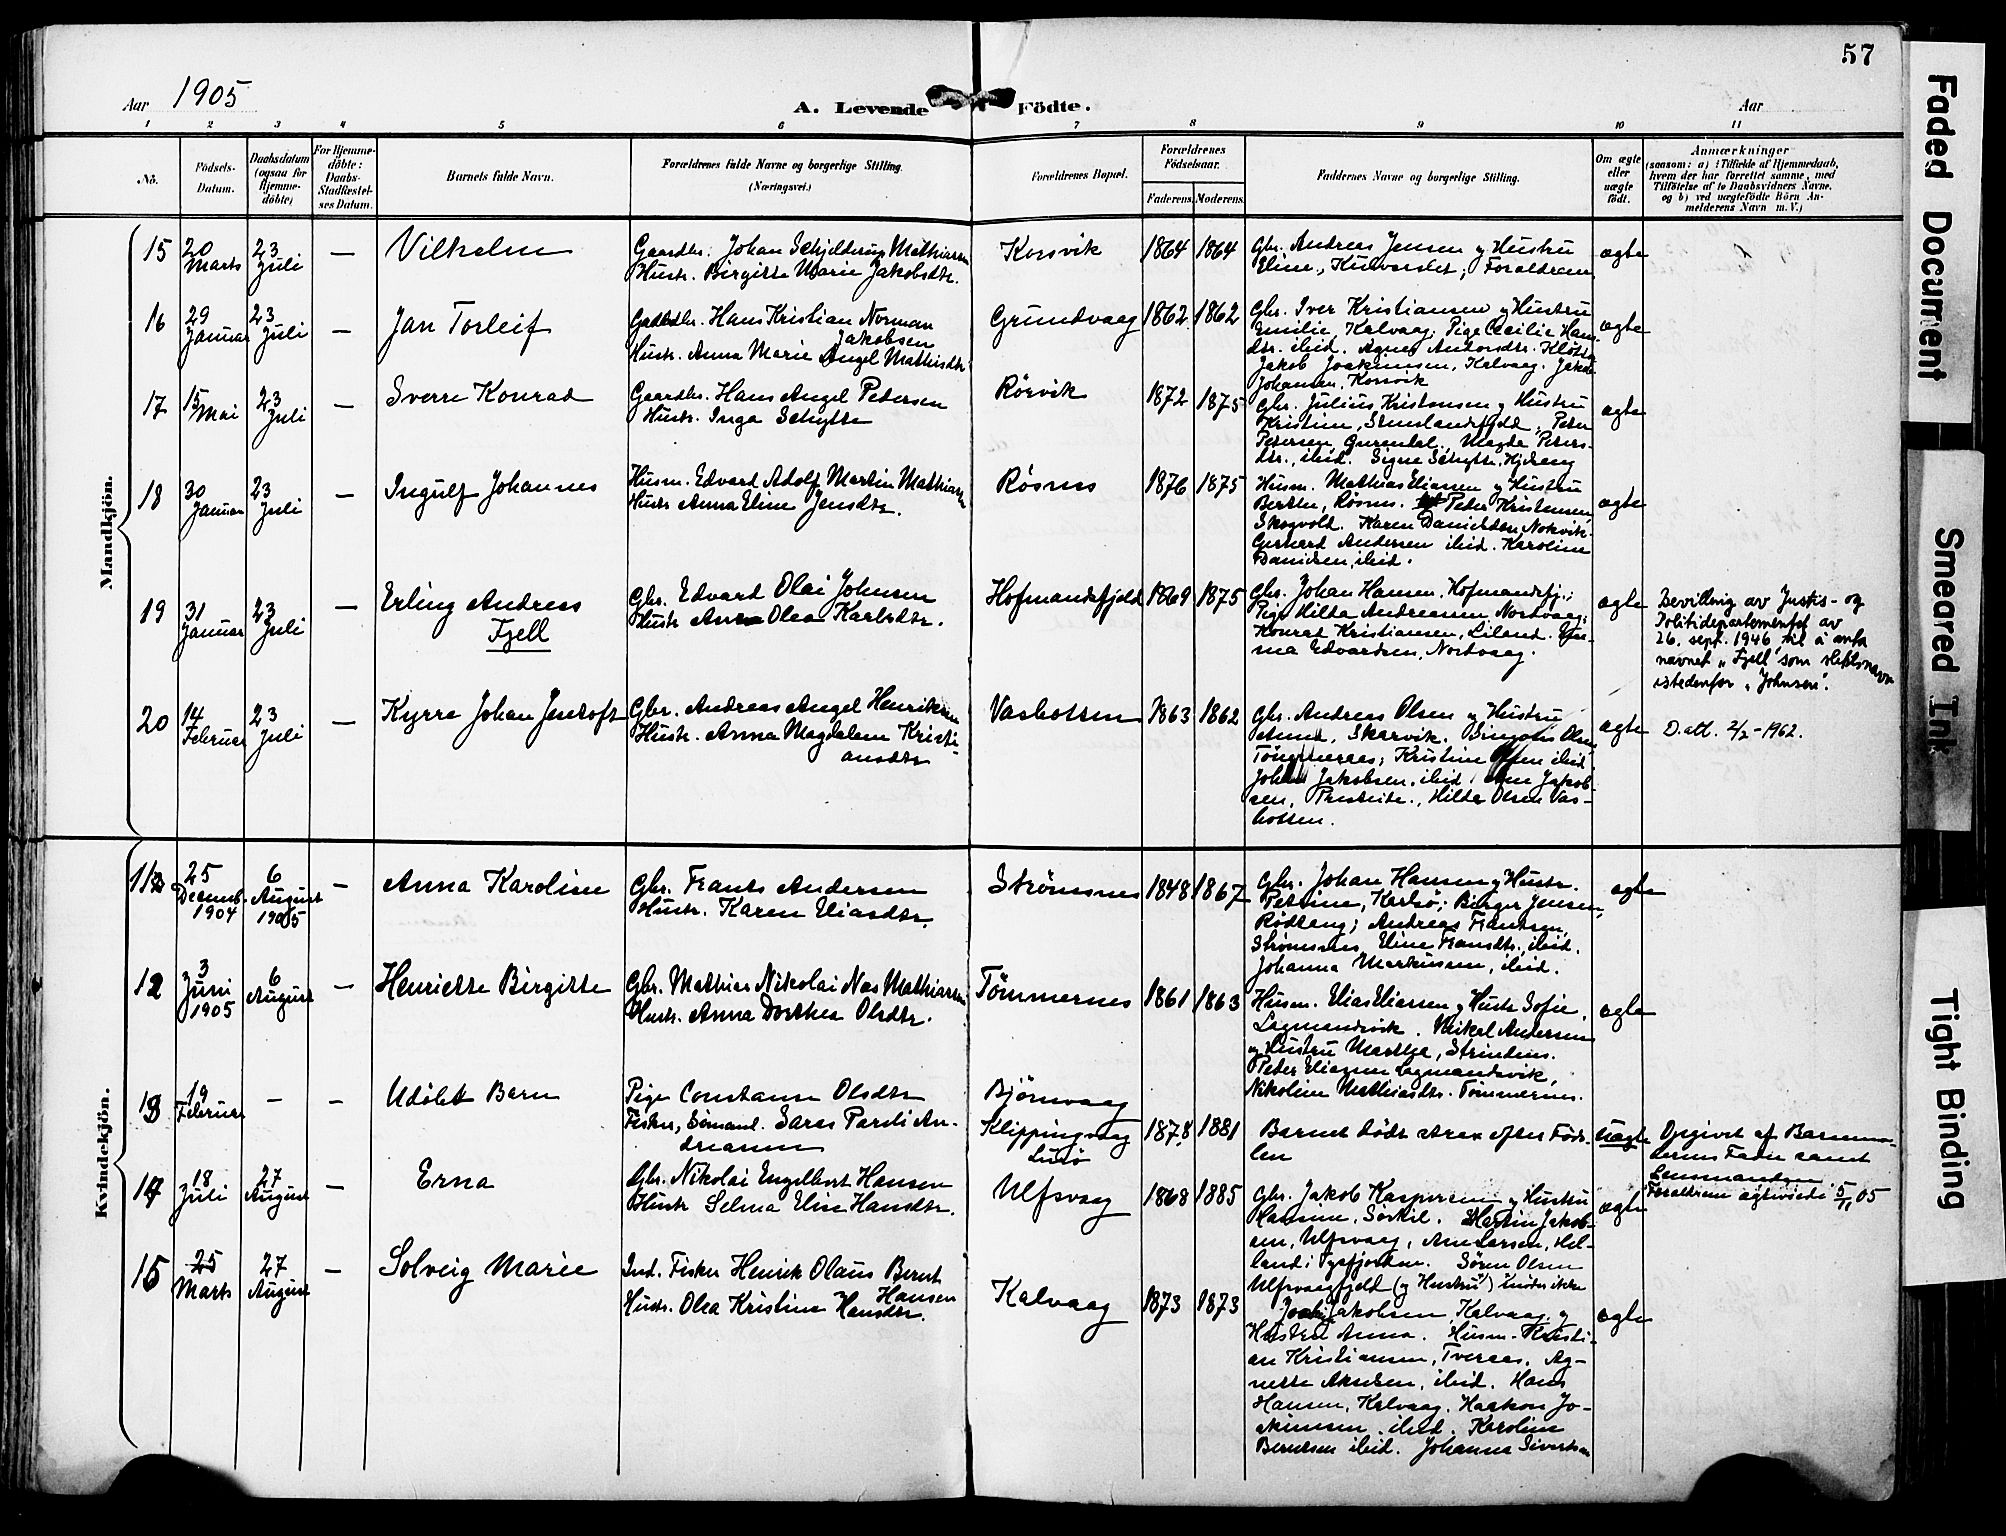 57
Aar 1905
A. Levende Födte.
Aar
1 2 3 4 5 6 7 8 9 10 11
No.
Födsels-Datum.
Daabsdatum (ogsaa for Hjemmedöbte)
For Hjemmedöbte: Daabs-Stadfæstelses Datum.
Barnets fulde Navn.
Forældrenes fulde Navne og borgerlige Stilling.
(Næringsvei.)
Forældrenes Bopæl.
Forældrenes Födselsaar.
Faderens. Moderens.
Faddernes Navne og borgerlige Stilling.
Om ægte eller uægte født.
Anmærkninger
(saasom: a) i Tilfælde af Hjemmedaab,
hvem der har forrettet samme, med
Tilföielse af to Daabsvidners Navne,
og b) ved uægtefödte Börn An-
melderens Navn m. V.)
Mandkjön.
15 20 Marts 23 Juli — Vilhelm
Gaardbr. Johan Schjelderup Mathiassen
Hustr. Birgitte Marie Jakobsdtr.
Korsvik 1864 1864
Gbr. Andreas Jensen og Hustru
Eline, ; Forældrene
ægte
16 29 Januar 23 Juli — Jan Torleif
Gaardbr. Hans Kristian Norman
Jakobsen
Hustr. Anna Marie Angel Mathisdtr
Grundvaag 1862 1862
Gbr. Iver Kristiansen og Hustru
Emilie, Kalvaag; Pige Cecilie Han-
dtr. ibid. Agnes
Jakob Joakimsen, Kalvaag. Jakob
Johansen, Korsvik
ægte
17 15 Mai 23 Juli — Sverre Konrad
Gaardbr. Hans Angel Petersen
Hustr. Inga Schytte
Rörvik 1872 1875
Gbr. Julius Kristensen og Hustru
Kristine, ; Peter
Petersen , Magda Peters-
dtr., ibid. Signe Schytte,
ægte
18 30 Januar 23 Juli — Ingulf Johannes
Husm. Edvard Adolf Martin Mathiassen
Hustr. Anna Eline Jensdtr.
Røsnes 1876 1875
Husm. Mathias Eliassen og Hustru
Berthe, Røsnes. Peter Kristensen,
Skogvold. Karen Danielsen Nokvik.
Gerhard Andersen ibid. Karoline
Danielsen, ibid.
ægte
19 31 Januar 23 Juli — Erling Andreas
Fjell
Gbr. Edvard Olai Johnsen
Hustr. Anna Olea Karlsdtr.
Hofmandsfjeld 1869 1875
Gbr. Johan Hansen, Hofmandsfj.;
Pige Hilda Andreassen Nordvaag;
Konrad Kristiansen, Liland.
Edvardsen, Nordvaag.
ægte
Bevilling av Justis- og
Politidepartementet av
26. sept. 1946 til å anta
navnet „Fjell" som slektsnavn
istedenfor „Johnsen".
20 14 Februar 23 Juli — Kyrre Johan Jentoft
Gbr. Andreas Angel Henriksen
Hustr. Anna Magdalena Kristi-
ansdtr
Vasbotten 1863 1862
Gbr. Andreas Olsen og Hustru
Anna, Skarvik. Olsen
Tömmernes; Kristine Olsen ibid.
Johan Jakobsen, ibid. Jakob-
sen, , Hilda Olsen Vas-
botten.
ægte
D.att. 2/2-1962.
Kvindekjön.
11 25 Decemb. 1904 6 August 1905 — Anna Karoline
Gbr. Frants Andersen
Hustr. Karen Eliasdtr.
Strömsnes 1848 1867
Gbr. Johan Hansen og Hustr.
Petrine, Karlsö; Birger Jensen,
Rödseng; Andreas Frantsen,
Strömsnes, Eline Fransdtr. ibid.
Johanna Markussen, ibid.
ægte
12 3 Juni 1905 6 August — Henriette Birgitte
Gbr. Mathias Nikolai Næs Mathiassen
Hustr. Anna Dorthea Olsdtr.
Tömmernes 1861 1863
Husm. Elias Eliassen og Hustr Sofie,
Lagmandsvik. Mikal Andersen
og Hustru Marthe, Strindnes.
Peter Eliassen Lagmandsvik,
Nikoline Mathiasdtr. Tömmernes.
ægte
13 19 Februar — — Udöbt Barn
Pige Constanse Olsdtr
Fisker, Sömand. Lares Pareli An-
dreassen
Bjørnvaag
Klippingvaag
Lundö
1878 1881
Barnet døde strax efter Föds-
len
uægte
Opgivet af Barnemo-
derens Fader samt
Lensmanden
14 18 Juli 27 August — Erna
Gbr. Nikolai Engelbert Hansen
Hustr Selma Elise Hansdtr.
Ulfsvaag 1868 1885
Gbr. Jakob Kaspersen og Hustru
Hansine, Sörkil. Martin Jakob-
sen, Ulfsvaag, Ane Larsen, Hel-
land i Tysfjorden. Sören Olsen
Ulfsvaagfjeld (og Hustru)
ægte
Forældrene ægteviede 5/11 05
15 25 Marts 27 August — Solveig Marie
Ind. Fisker Henrik Olaus Bernt
Hansen
Hustr. Olea Kristine Hansdtr.
Kalvaag 1873 1873
Jakobsen, Kalvaag, og
Hustru Anna. Husm. Kristi-
an Kristiansen, Tveraas, Ag-
nethe Aksdsen, ibid. Hans
Hansen, Kalvaag, Haakon Jo-
akimsen, ibid. Karoline
Berntsen ibid. Johanna Sivertsen
ægte
Faded Document
Smeared Ink
Tight Binding